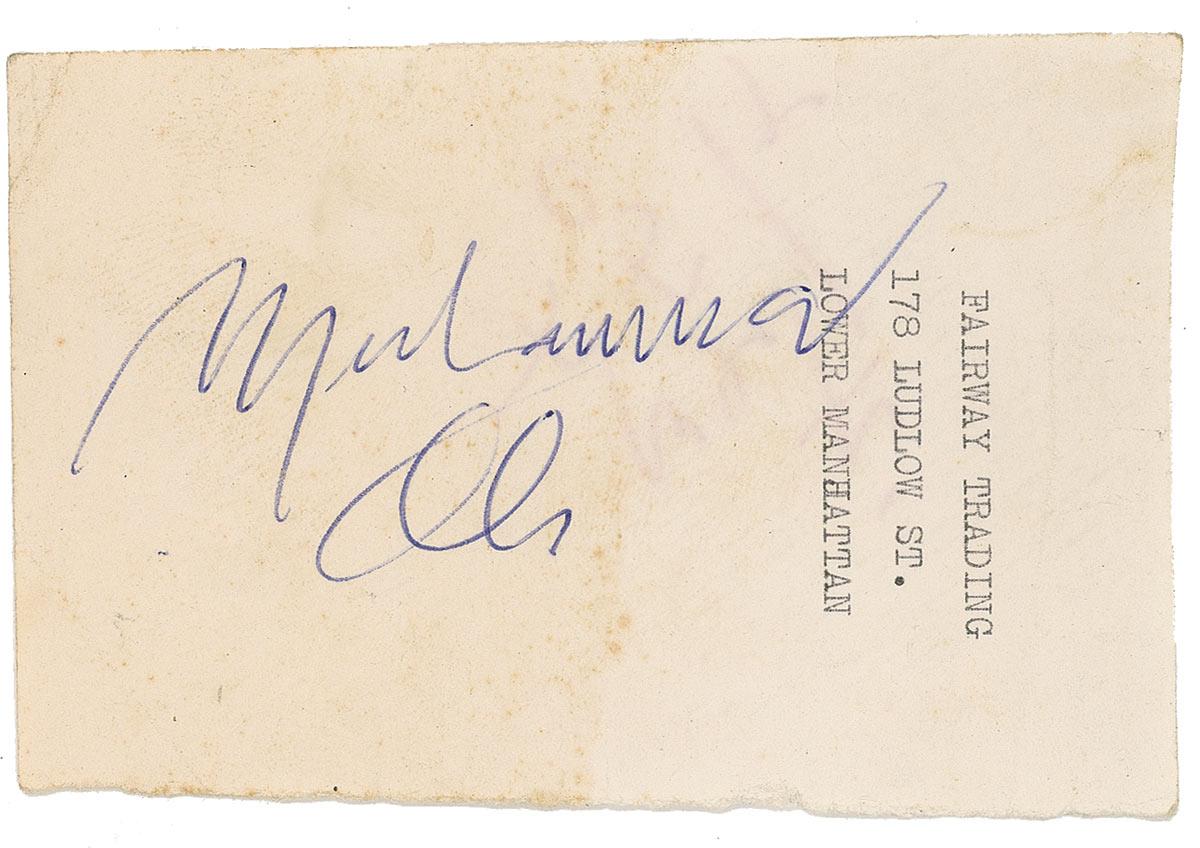 Muhammad
Ali
FAIRWAY TRADING
178 LUDLOW ST.
LOWER MANHATTAN